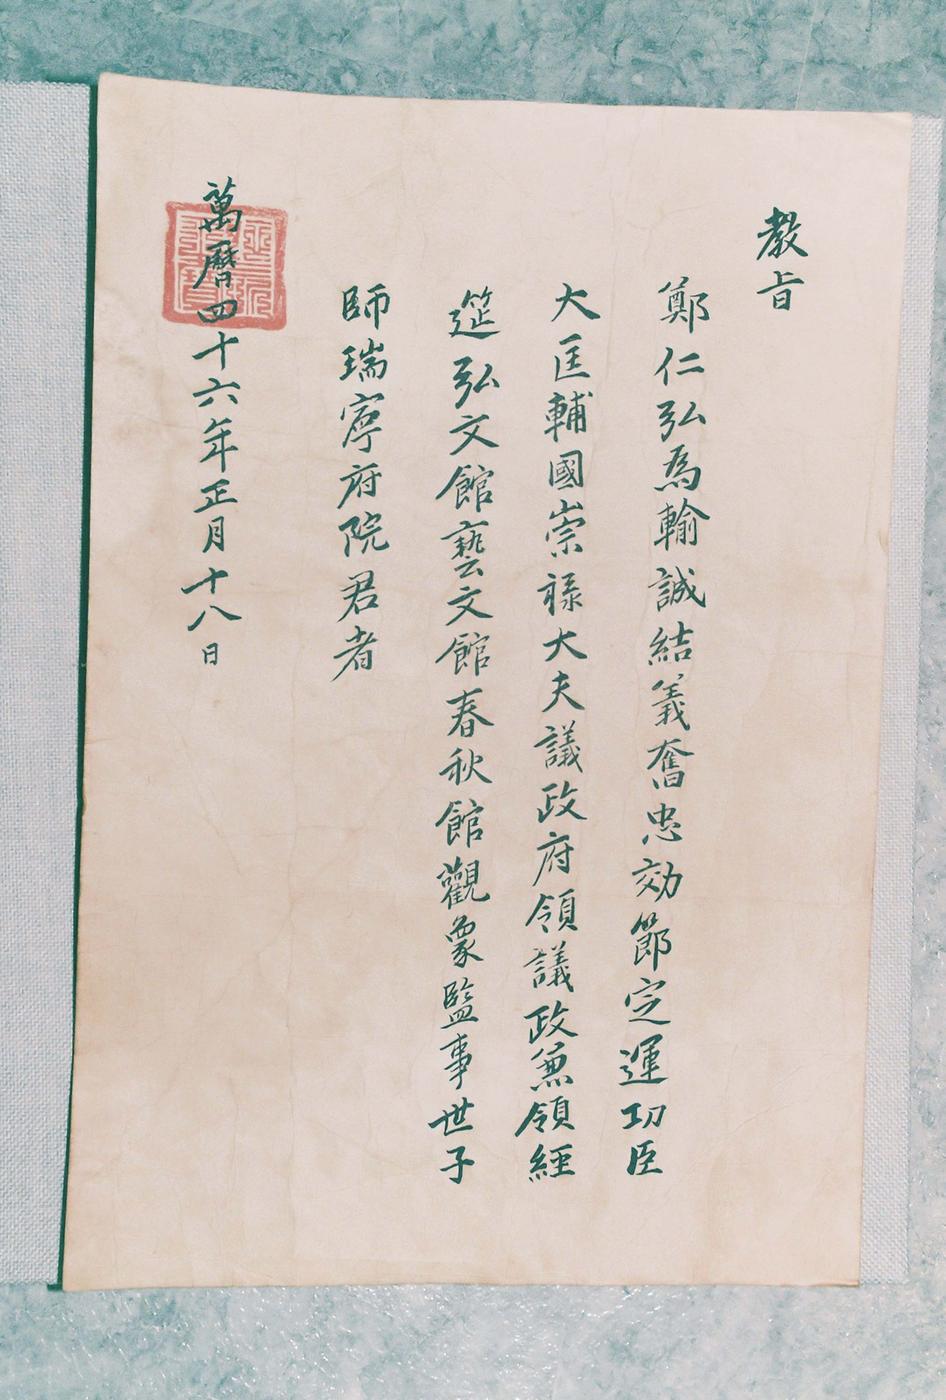 教旨
鄭仁弘為輸誠結義奮忠効節定運功臣
大匡輔國崇祿大夫議政府領議政兼領經
筵弘文館藝文館春秋館觀象監事世子
師瑞寧府院君者
萬曆四十六年正月十八日